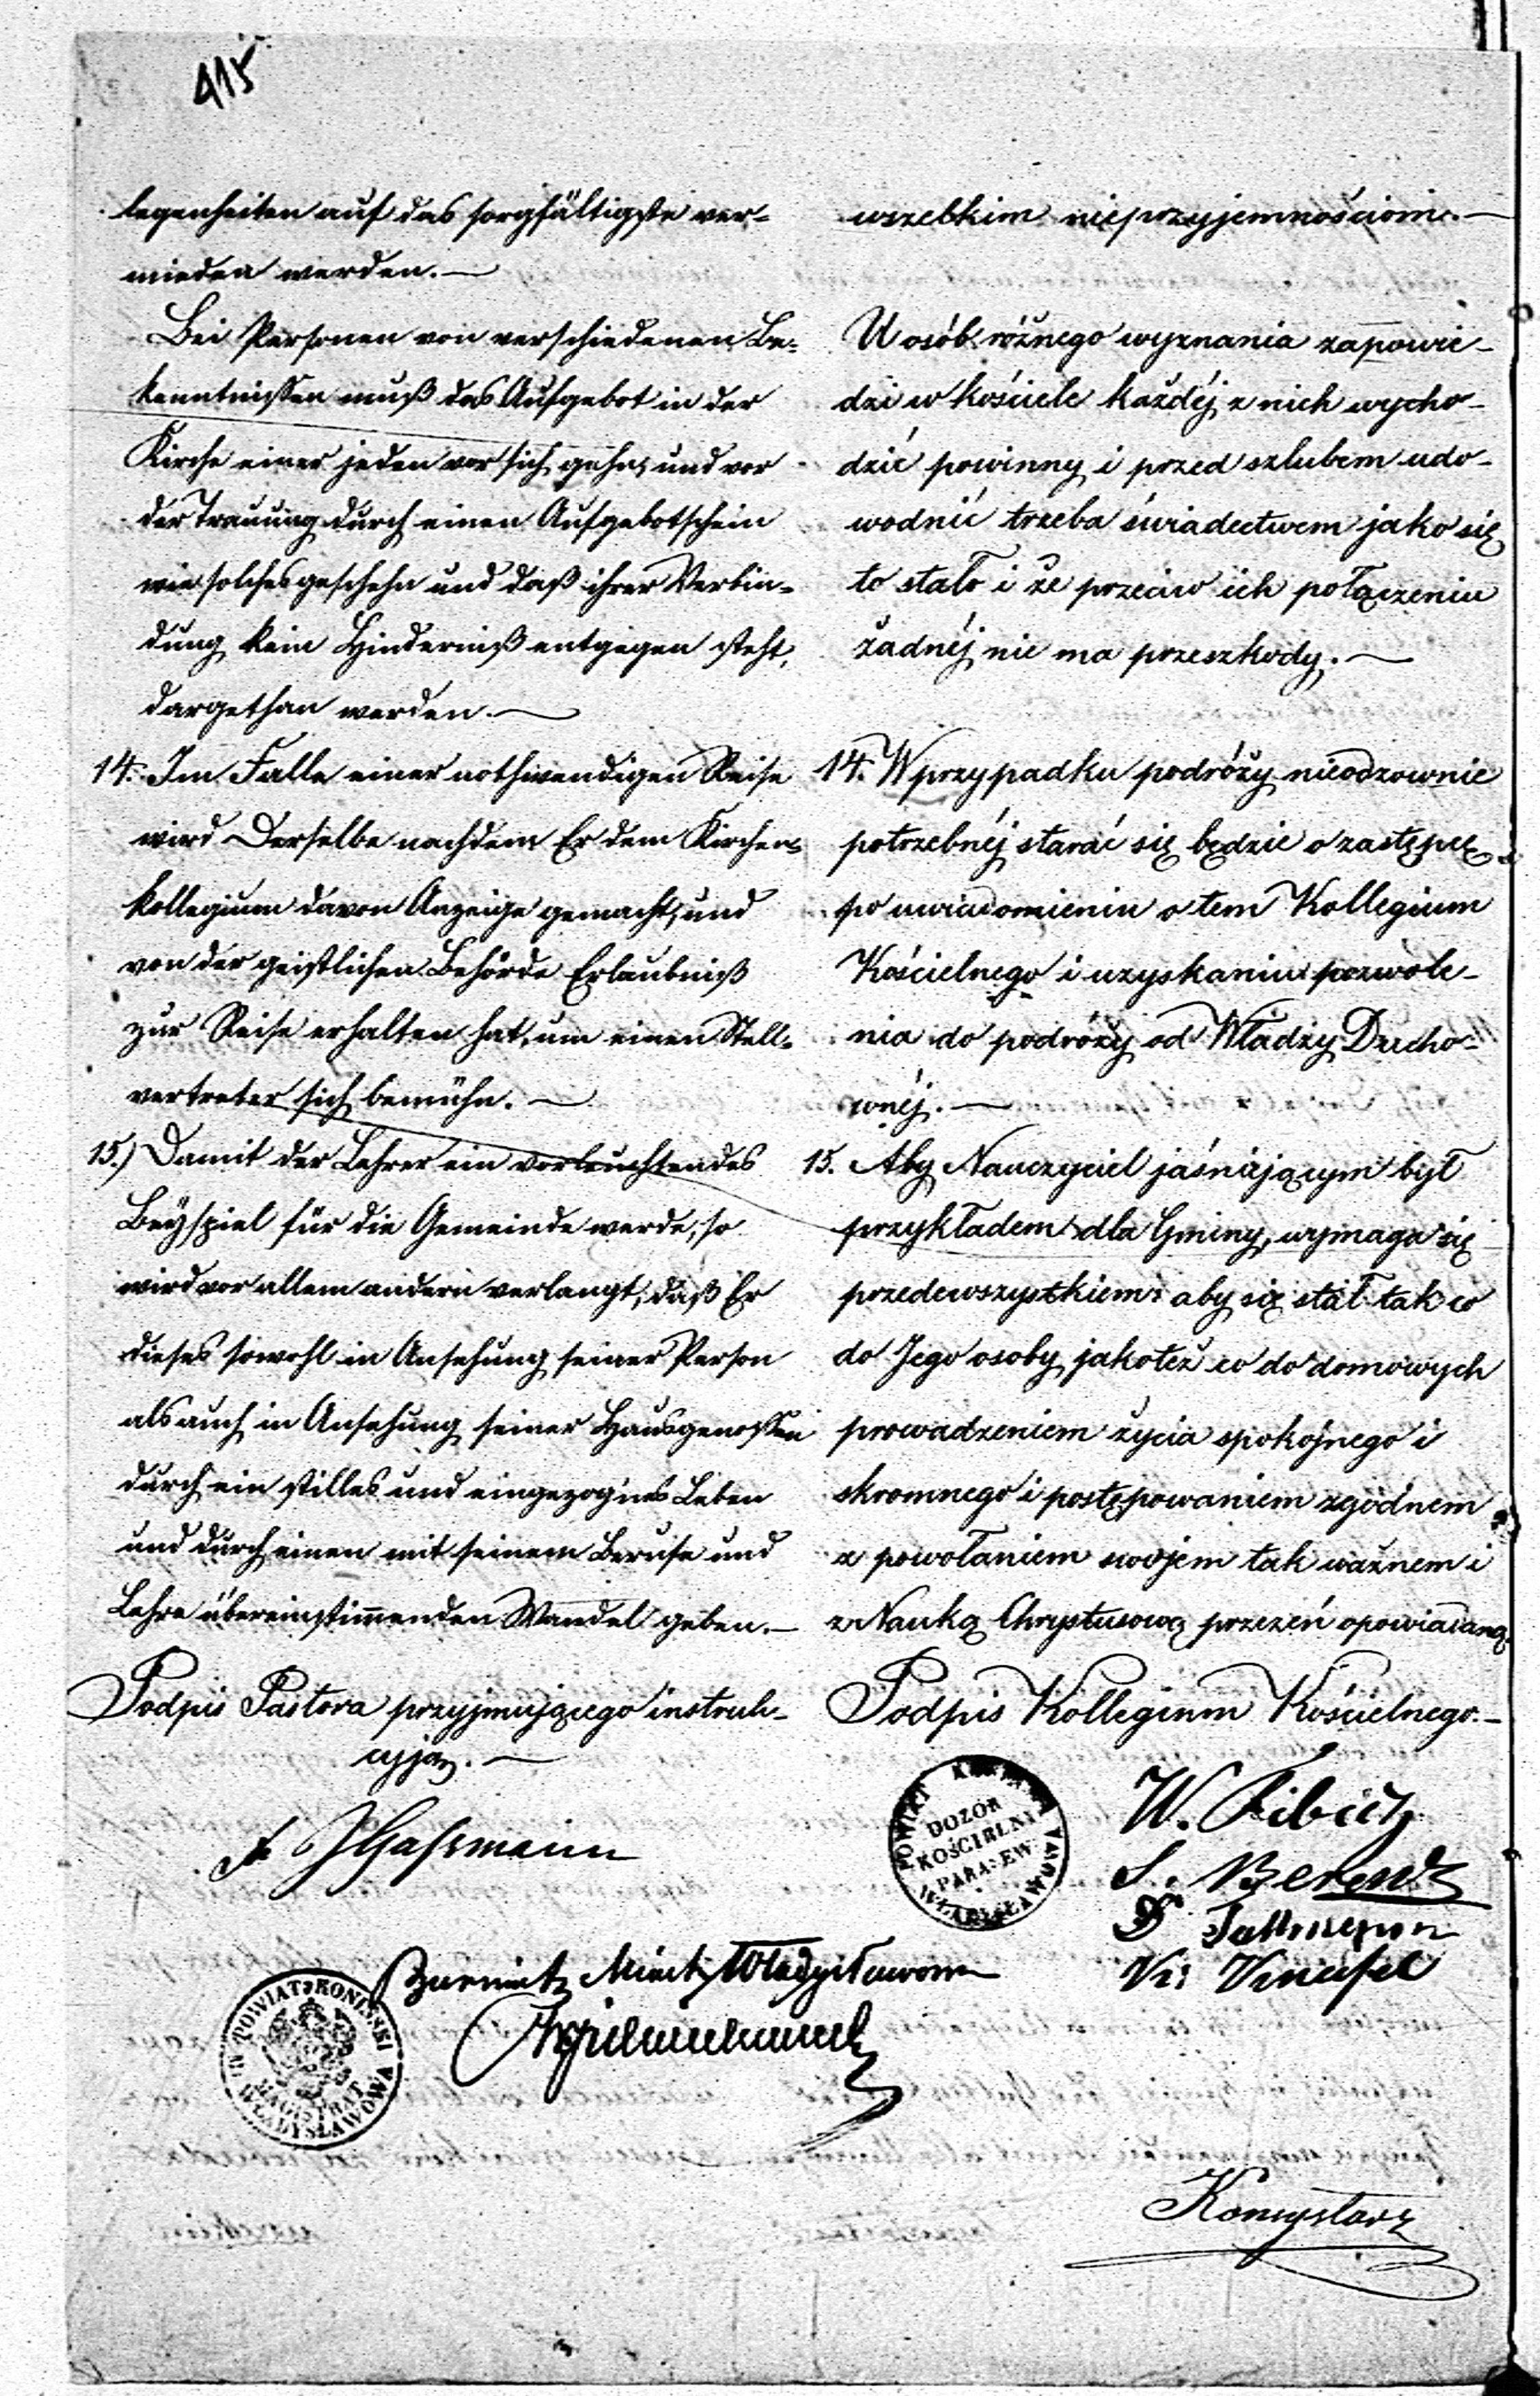 415
legenheiten auf das sorgfältigste ver-
mieden werden. —
Bei Personen von verschiedenen Be-
kenntnißen muß das Aufgebot in der
Kirche einer jeden vor sich gehn, und vor
der Trauung durch einen Aufgebotschein
wie solches geschehn und daß ihrer Verbin-
dung kein Hinderniß entgegen steht,
dargethan werden. —
14. Im Falle einer nothwendigen Reise
wird Derselbe nachdem Er dem Kirchen-
kollegium davon Anzeige gemacht, und
von der geistlichen Behörde Erlaubniß
zur Reise erhalten hat, um einen Stell-
vertreter sich bemühn. —
15.) Damit der Lehrer ein vorleuchtendes
Beÿspiel für die Gemeinde werde, so
wird vor allem andern verlangt, daß Er
dieses sowohl in Ansehung seiner Person
als auch in Ansehung seiner Hausgenoßen
durch ein stilles und eingezognes Leben
und durch einen mit seinem Berufe und
Lehre übereinstimmenden Wandel geben. —
Podpis Pastora przyjmującego instruk-
cyją. —
wszelkim nieprzyjemnościom. —
U osób różnego wyznania zapowie-
dzi w kościele każdéj z nich wycho-
dzić powinny i przed szlubem udo-
wodnić trzeba świadectwem jako się
to stało i że przeciw ich połączeniu
żadnéj nie ma przeszkody. —
14. W przypadku podróży nieodzownie
potrzebnéj starać się będzie o zastępcę
po uwiadomieniu o tem Kollegium
Kościelnego i uzyskaniu pozwole-
nia do podróży od Władzy Ducho-
wnéj. —
15. Aby Nauczyciel jaśniejącym był
przykładem dla Gminy, wymaga się
przedewszystkiem: aby się stał tak co
do Jego osoby jakoteż co do domowych
prowadzeniem życia spokojnego i
skromnego i postępowaniem zgodnem
z powołaniem swojem tak ważnem i
z Nauką Chrystusową przezeń opowiadaną.
Podpis Kollegium Kościelnego. —
POWIAT
DOZÓR
KOŚCIELNY
PARA: EW:
WŁADYSŁAWOWA
W.
S. Berendt
Burmistrz Miasta Władysławowa
POWIAT KONIŃSKI
MAGISTRAT
WŁADYSŁAWOWA